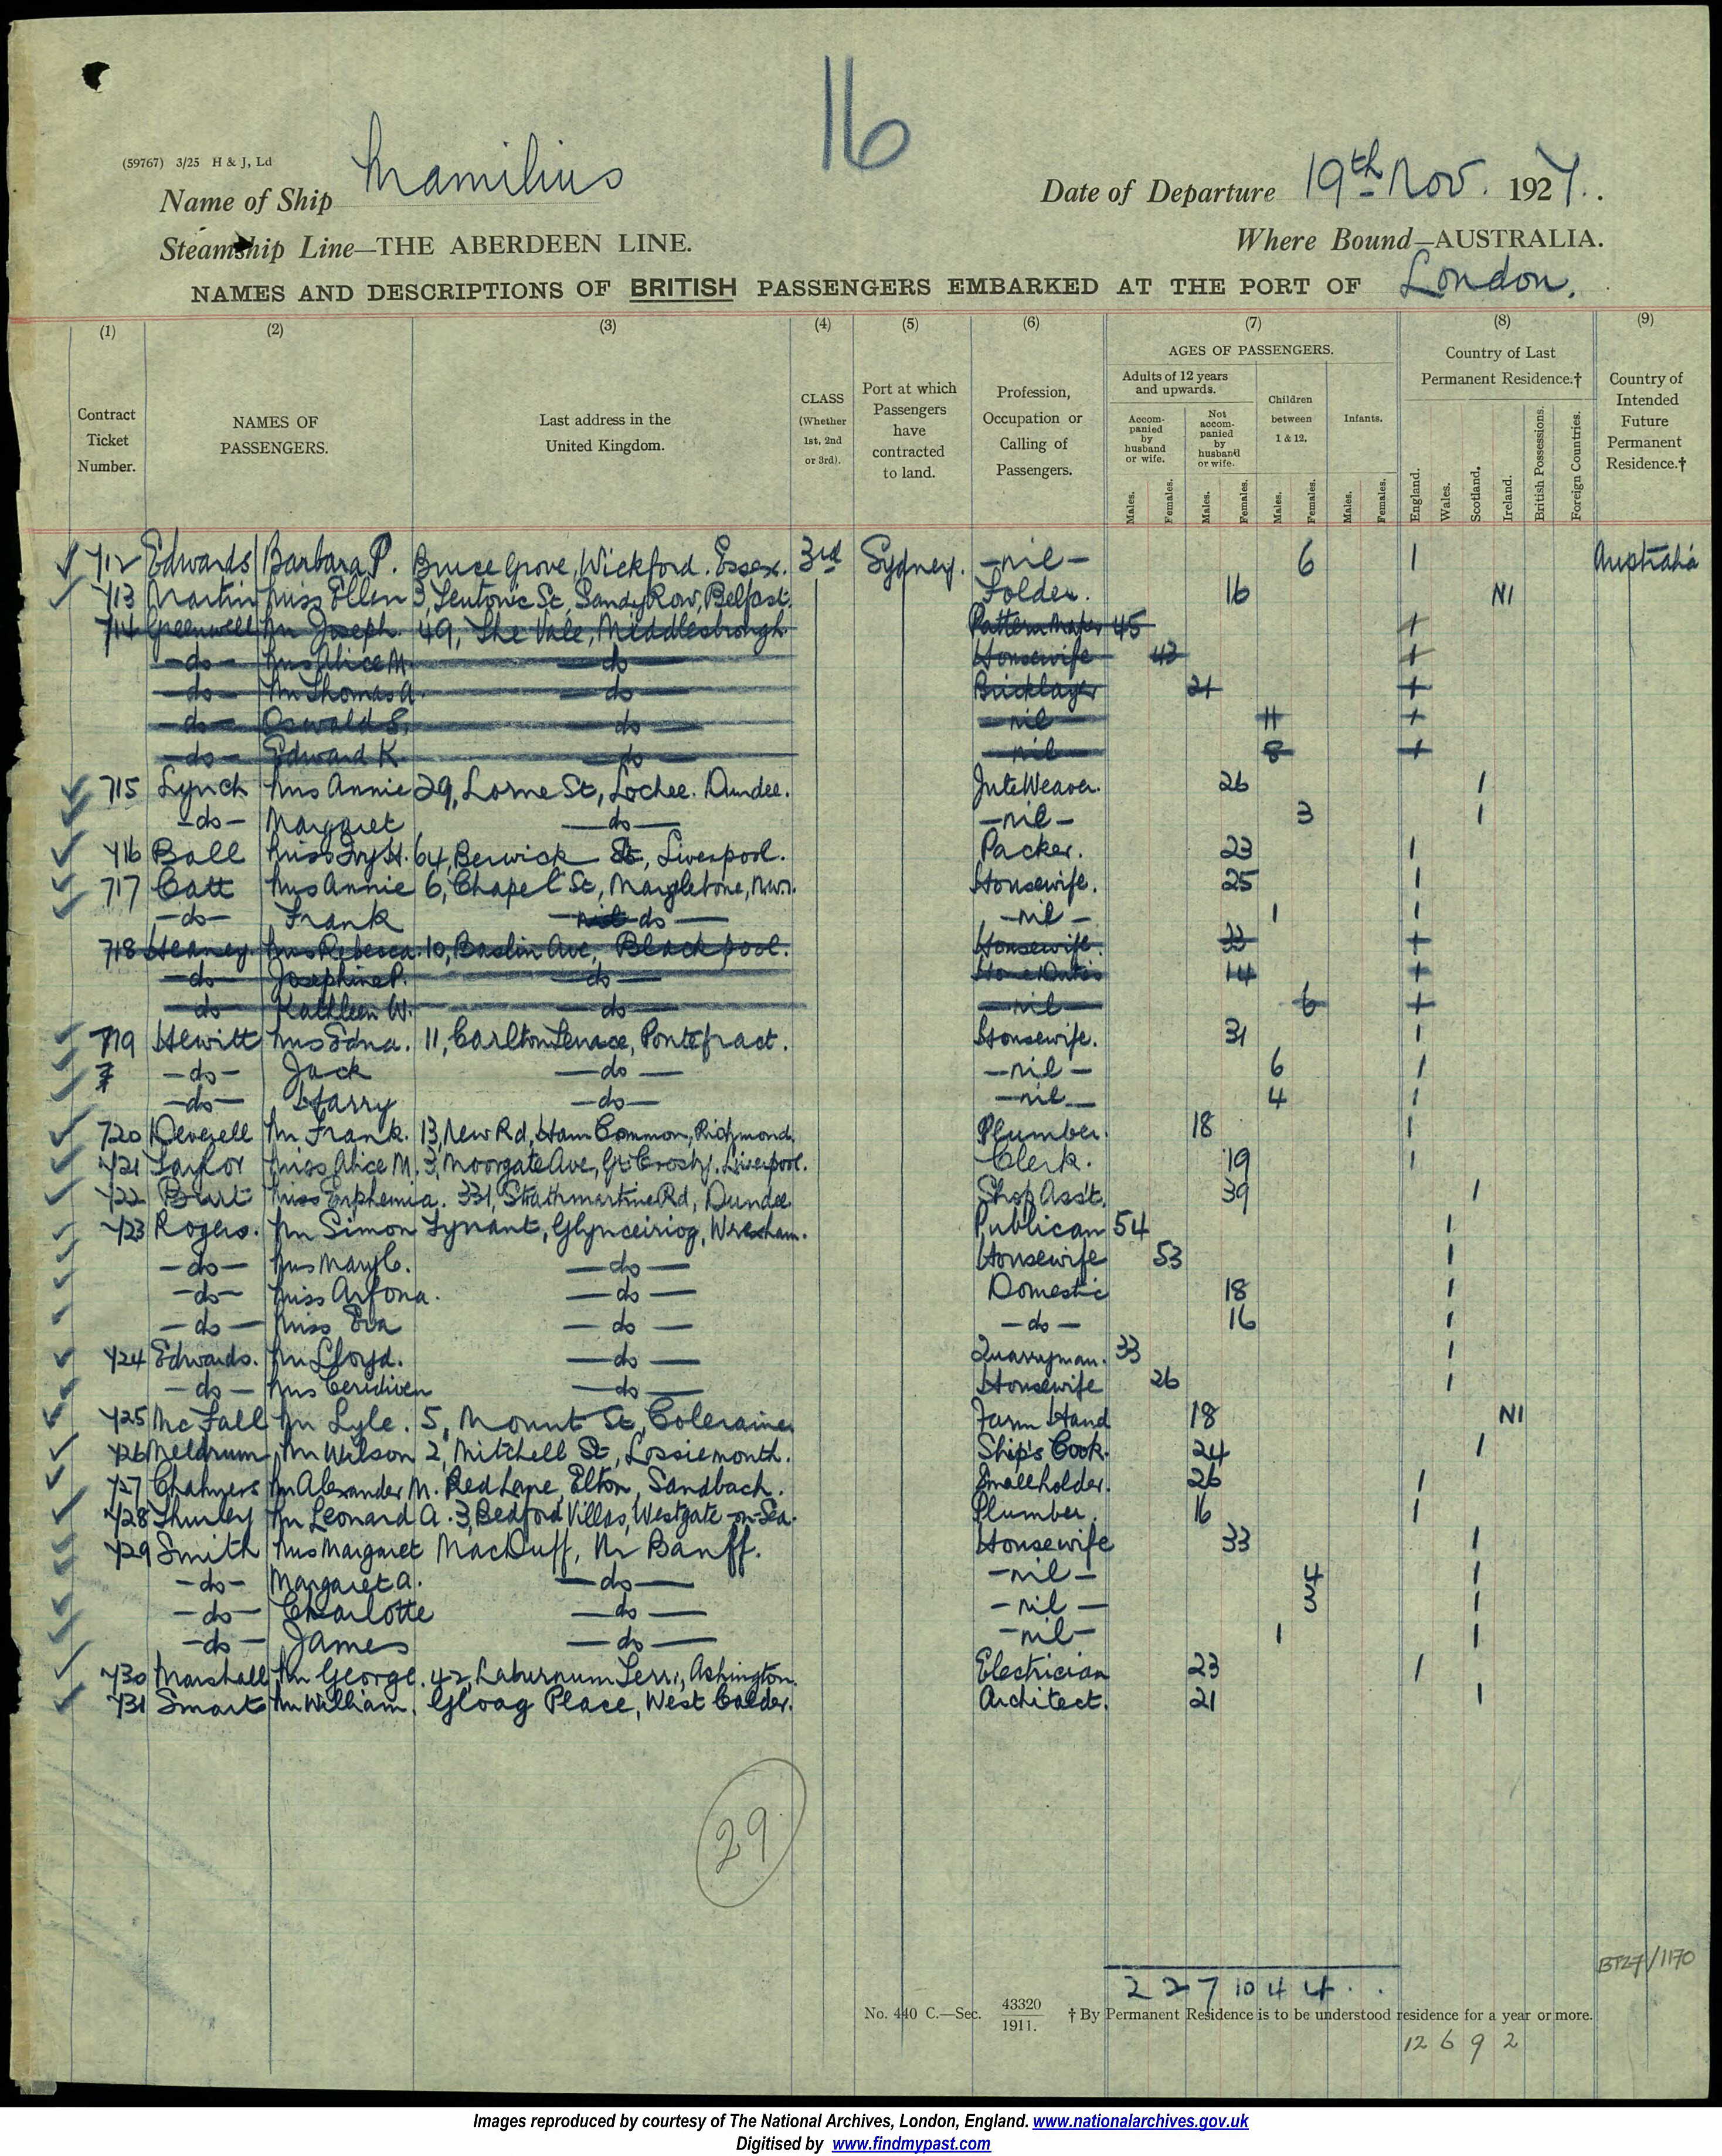 16
(59767) 3/25 H & J, Ld
Name of Ship Mamilius
Date of Departure 19th Nov. 1927.
Steamship Line—THE ABERDEEN LINE.
Where Bound—AUSTRALIA.
NAMES AND DESCRIPTIONS OF BRITISH PASSENGERS EMBARKED AT THE PORT OF London.
(1) (2) (3) (4) (5) (6) (7) (8) (9)
Contract Ticket Number.
NAMES OF PASSENGERS.
Last address in the United Kingdom.
CLASS (Whether 1st, 2nd or 3rd).
Port at which Passengers have contracted to land.
Profession, Occupation or Calling of Passengers.
AGES OF PASSENGERS.
Adults of 12 years and upwards.
Accompanied by husband or wife.
Not accompanied by husband or wife.
Children between 1 & 12.
Infants.
Males. Females. Males. Females. Males. Females. Males. Females.
Country of Last Permanent Residence.†
England. Wales. Scotland. Ireland. British Possessions. Foreign Countries.
Country of Intended Future Permanent Residence.†
712 Edwards Barbara P. Bruce Grove, Wickford. Essex. 3rd Sydney. -nil- 6 1 Australia
713 Martin Miss Ellen 3, Teutonic St, Sandy Row, Belfast. Folder. 16 NI
714 Greenwell Mr Joseph. 49, The Vale, Middlesbrough Pattern Maker 45 1
-do- Mrs Alice M. -do- Housewife 43 1
-do- Mr Thomas A. -do- Bricklayer 21 1
-do- Oswald S. -do- -nil- 11 1
-do- Edward K. -do- -nil- 8 1
715 Lynch Mrs Annie 29, Lorne St, Lochee. Dundee. Jute Weaver. 26 1
-do- Margaret -do- -nil- 3 1
716 Ball Miss Ivy H. 64, Berwick St, Liverpool. Packer. 23 1
717 Catt Mrs Annie 6, Chapel St, Marylebone, N.W.1. Housewife. 25 1
-do- Frank nil do -nil- 1 1
718 Heaney Mrs Rebecca. 10, Ave, Blackpool. Housewife. 33 1
-do- Josephine P. -do- Home Duties 14 1
-do- Kathleen W. -do- -nil- 6 1
719 Hewitt Mrs Edna. 11, Carlton Terrace, Pontefract. Housewife. 31 1
-do- Jack -do- -nil- 6 1
-do- Harry -do- -nil- 4 1
720 Deverell Mr Frank. 13, New Rd, Ham Common, Richmond. Plumber. 18 1
721 Taylor Miss Alice M. 3, Moorgate Ave, Gt. Crosby. Liverpool. Clerk. 19 1
722 Burt Miss Euphemia. 331, Strathmartine Rd, Dundee. Shop Ass't. 39 1
723 Rogers. Mr Simon Tynant, Glynceiriog, Wrexham. Publican 54 1
-do- Mrs Mary C. -do- Housewife 53 1
-do- Miss Arfona. -do- Domestic 18 1
-do- Miss Eva -do- -do- 16 1
724 Edwards. Mr Lloyd. -do- Quarryman. 33 1
-do- Mrs Ceridiven -do- Housewife 26 1
725 McFall Mr Lyle. 5, Mount St, Coleraine. Farm Hand 18 NI
726 Meldrum Mr Wilson 2, Mitchell St, Lossiemouth. Ship's Cook. 24 1
727 Chalmers Mr Alexander M. Red Lane, Elton, Sandbach. Smallholder. 26 1
728 Thurley Mr Leonard A. 3, Bedford Villas, Westgate-on-Sea. Plumber. 16 1
729 Smith Mrs Margaret MacDuff, Nr Banff. Housewife 33 1
-do- Margaret A. -do- -nil- 4 1
-do- Charlotte -do- -nil- 3 1
-do- James -do- -nil- 1 1
730 Marshall Mr George. 42, Laburnum Terr., Ashington. Electrician 23 1
731 Smart Mr William. Gloag Place, West Calder. Architect. 21 1
29
BT27/1170
2 2 7 10 4 4 . .
No. 440 C.—Sec. 43320 1911. † By Permanent Residence is to be understood residence for a year or more.
12 6 9 2
Images reproduced by courtesy of The National Archives, London, England. www.nationalarchives.gov.uk
Digitised by www.findmypast.com